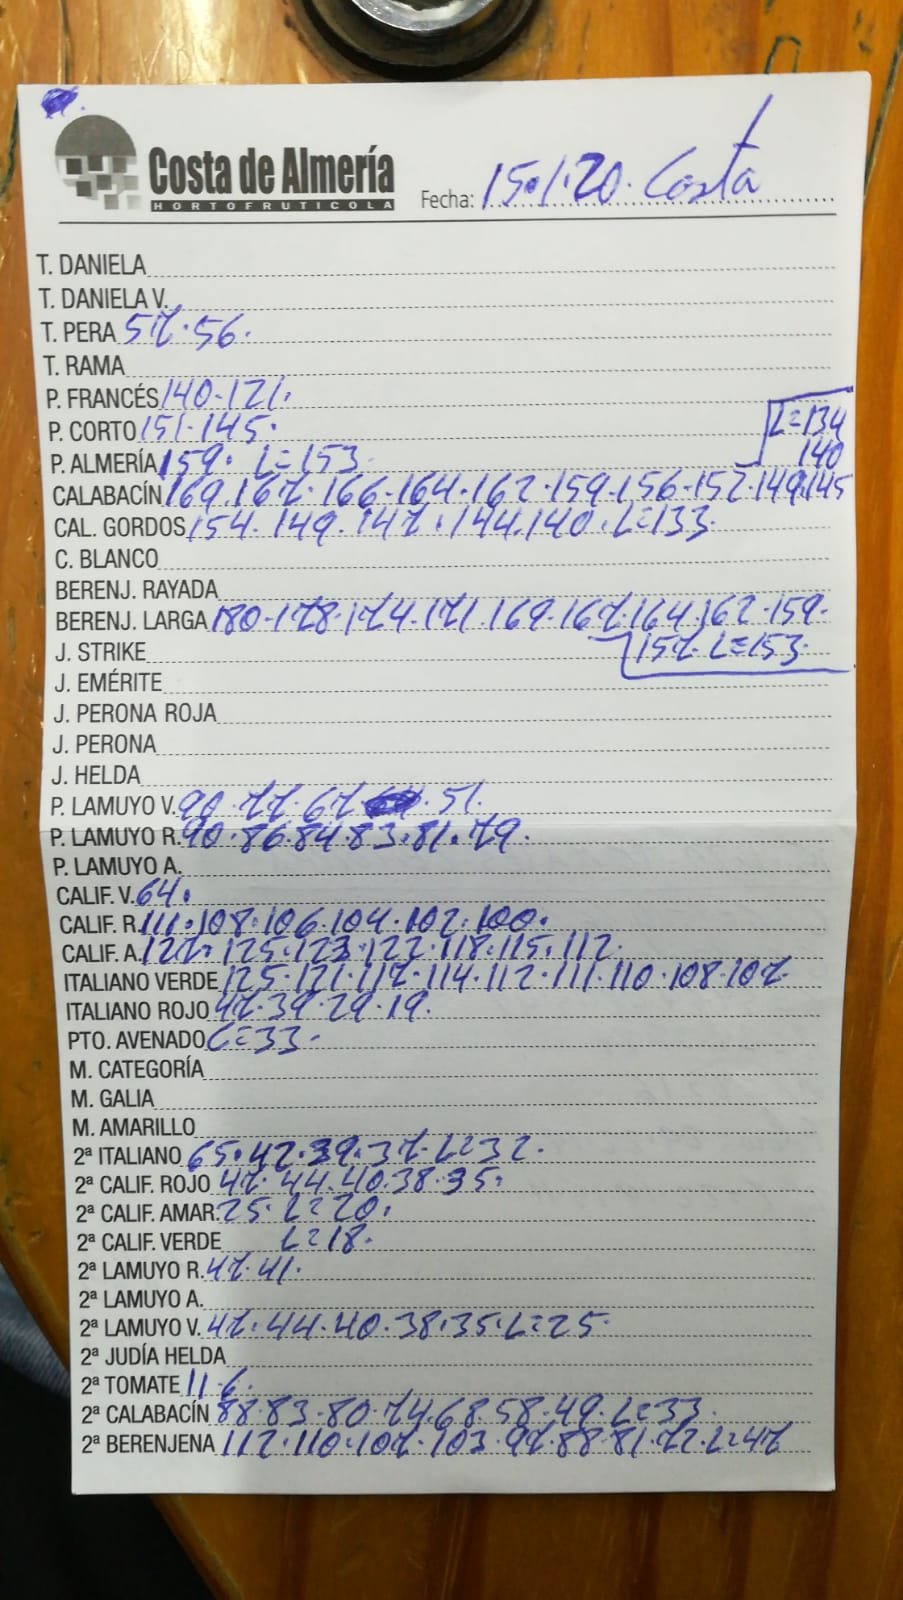 Costa de Almería
HORTOFRUTICOLA
Fecha: 15.1.20. Costa
T. DANIELA
T. DANIELA V.
T. PERA 57.56.
T. RAMA
P. FRANCÉS 140-121.
P. CORTO 151-145.
L=134
P. ALMERÍA 159. L=153.
140
CALABACÍN 169.167.166.164.162.159.156.152.149.145
CAL. GORDOS 154.149.147.144.140.L=133.
C. BLANCO
BERENJ. RAYADA
BERENJ. LARGA 180-178-174.171.169.167.164.162.159.
J. STRIKE 157. L=153.
J. EMÉRITE
J. PERONA ROJA
J. PERONA
J. HELDA
P. LAMUYO V. 90.77.67. 51.
P. LAMUYO R. 90.86.84.83.81.79.
P. LAMUYO A.
CALIF. V. 64.
CALIF. R. 111.108.106.104.102.100.
CALIF. A. 127.125.123.122.118.115.112.
ITALIANO VERDE 125.121.117.114.112.111.110.108.107.
ITALIANO ROJO 47.39.29.19.
PTO. AVENADO L=33.
M. CATEGORÍA
M. GALIA
M. AMARILLO
2ª ITALIANO 65.42.39.37.L=32.
2ª CALIF. ROJO 47.44.40.38.35.
2ª CALIF. AMAR. 25. L=20.
2ª CALIF. VERDE L=18.
2ª LAMUYO R. 47.41.
2ª LAMUYO A.
2ª LAMUYO V. 47.44.40.38.35.L=25.
2ª JUDÍA HELDA
2ª TOMATE 11-6.
2ª CALABACÍN 88.83.80.74.68.58.49.L=33.
2ª BERENJENA 112.110.107.103.97.88.81.72.L=47